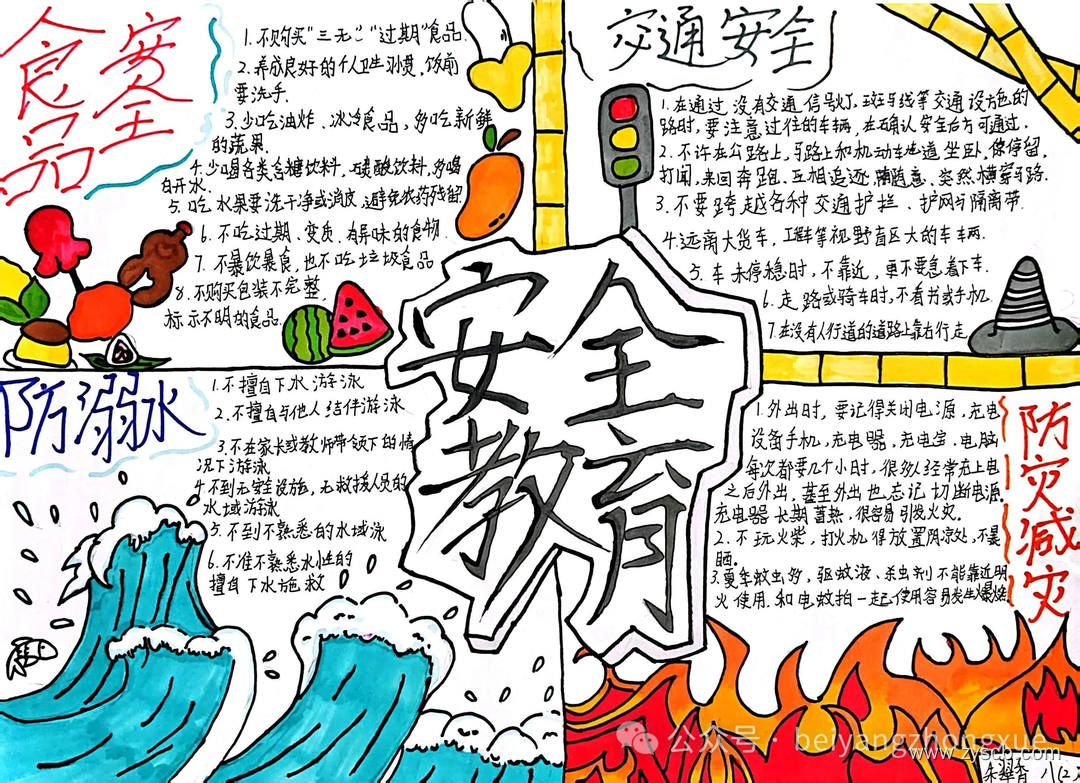 食品
安全
1.不购买"三无""过期"食品.
2.养成良好的个人卫生习惯,饭前
要洗手.
3.少吃油炸、冰冷食品,多吃新鲜
的蔬果.
4.少喝各类含糖饮料,碳酸饮料,多喝
白开水.
5.吃水果要洗干净或消皮,避免农药残留.
6.不吃过期、变质、有异味的食物.
7.不暴饮暴食,也不吃垃圾食品
8.不购买包装不完整
标示不明的食品.
交通安全
1.在通过没有交通信号灯,斑马线等交通设施的
路时,要注意过往的车辆,在确认安全后方可通过.
2.不许在公路上,马路上和机动车道坐卧,停留,
打闹,来回奔跑、互相追逐,随意、突然横穿马路.
3.不要跨越各种交通护拦、护网与隔离带.
4.远离大货车,工程车等视野盲区大的车辆.
5.车未停稳时,不靠近,更不要急着下车.
6.走路或骑车时,不看书或手机.
7.走没有人行道的道路上靠右行走
安全
教育
防溺水
1.不擅自下水游泳
2.不擅自与他人结伴游泳
3.不在家长或教师带领下的情
况下游泳
4.不到无安全设施,无救援人员的
水域游泳
5.不到不熟悉的水域泳
6.不准不熟悉水性的
擅自下水施救
防灾减灾
1.外出时,要记得关闭电源,充电
设备手机,充电器,充电宝,电脑
每次都要几个小时.很多人经常充上电
之后外出.甚至外出也忘记切断电源.
充电器长期蓄热,很容易引发火灾.
2.不玩火柴,打火机得放置阴凉处,不暴
晒.
3.夏年蚊虫多,驱蚊液、杀虫剂不能靠近明
火使用.和电蚊拍一起使用容易发生爆燃
公众号·beiyangzhongxue
www.zyscb.com